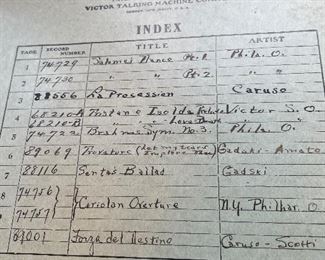 VICTOR TALKING MACHINE COM
INDEX
PAGE RECORD NUMBER TITLE ARTIST
1 74729 Salome's Dance Pt. 1 Phila. O.
2 74730 " " Pt. 2 " "
3 88556 La Procession Caruso
4 68210-A Tristan e Isolde Victor S. O.
68210-B " " Love Death
5 74722 Brahms Sym. No. 3 Phila. O.
6 89069 Trovatore (Let my tears Implore Thee) Gadski - Amato
7 88116 Senta's Ballad Gadski
8 74756 } Coriolan Overture N.Y. Philhar. O
9 74757 }
89001 Forza del Destino Caruso - Scotti